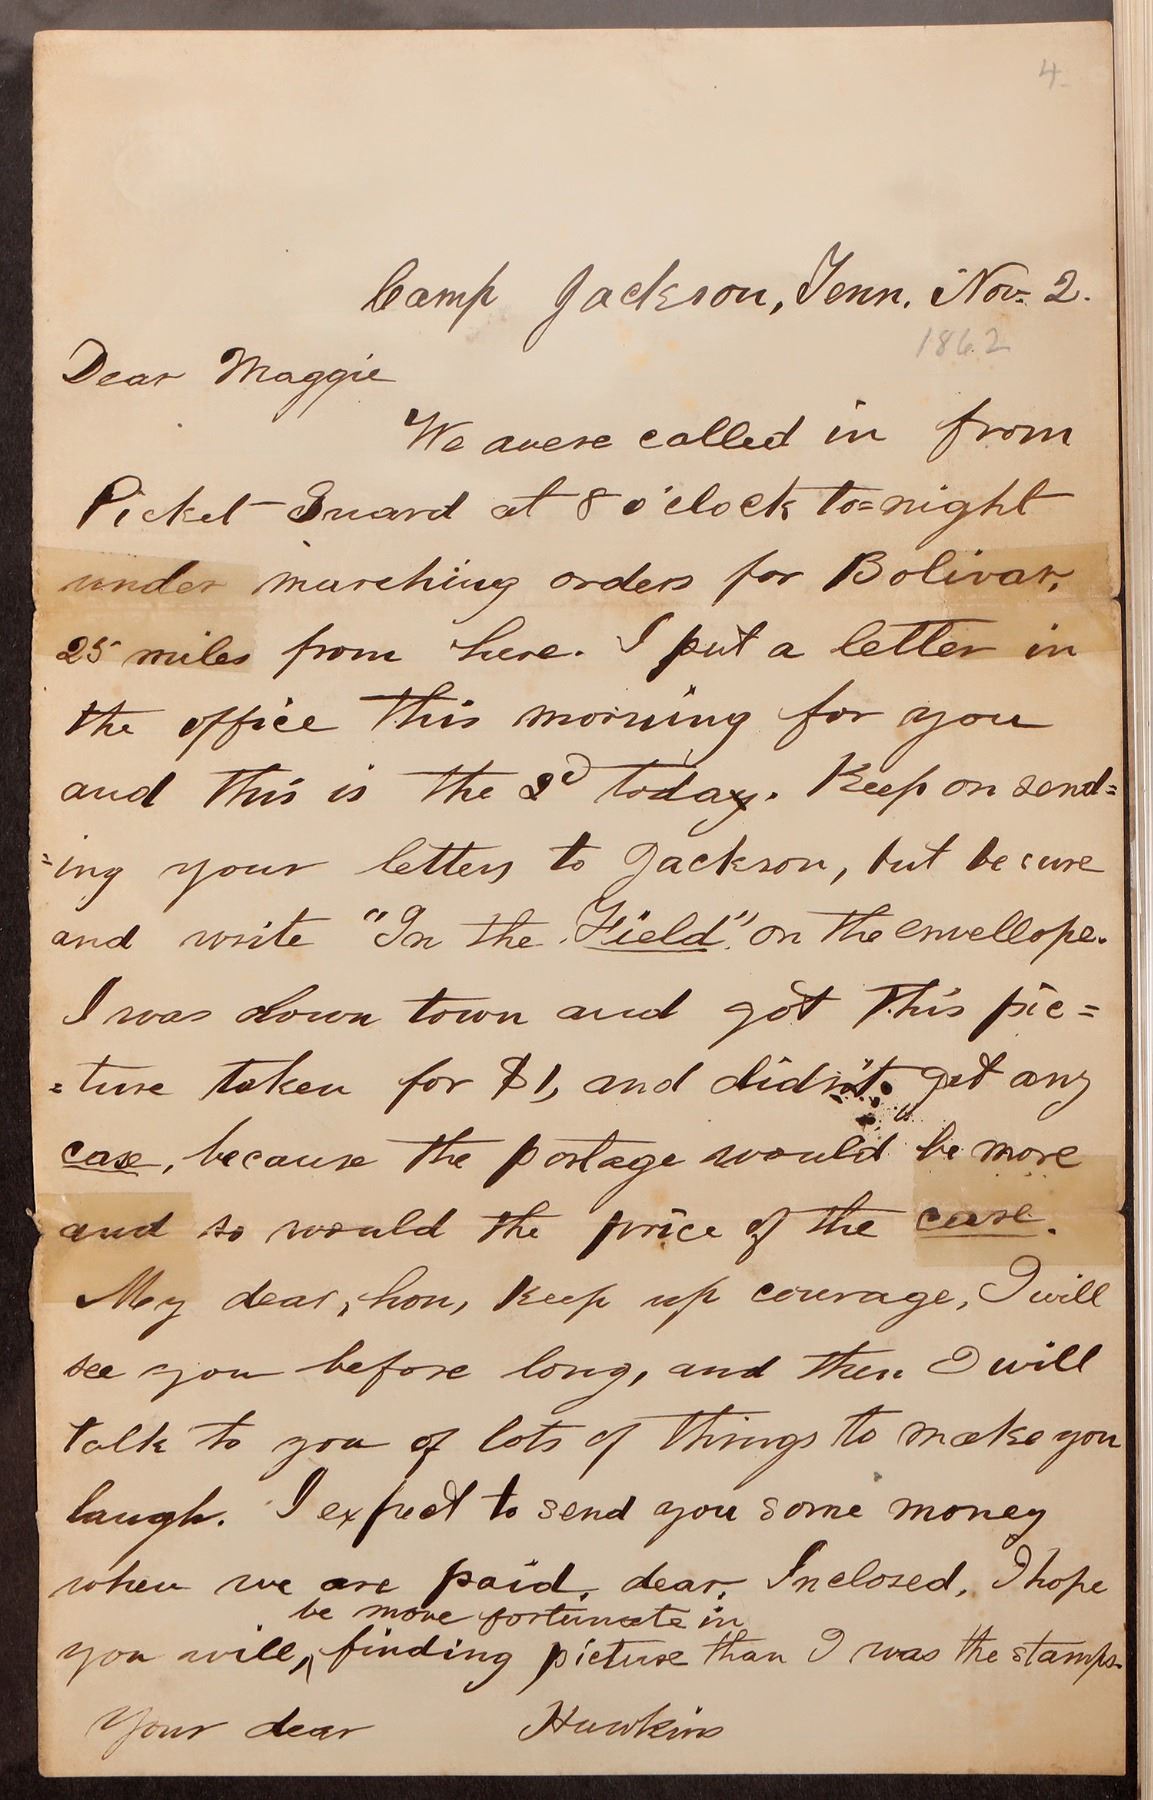 4
Camp Jackson, Tenn. Nov. 2.
1862
Dear Maggie
We were called in from
Picket Guard at 8 o'clock to=night
under marching orders for Bolivar,
25 miles from here. I put a letter in
the office this morning for you
and this is the 2d today. Keep on send=
=ing your letters to Jackson, but be sure
and write "In the Field" on the envellope.
I was down town and got this pic=
=ture taken for $1, and didn't get any
case, because the postage would be more
and so would the price of the case.
My dear, hon, keep up courage, I will
see you before long, and then I will
talk to you of lots of things to make you
laugh. I expect to send you some money
when we are paid, dear. Inclosed, I hope
be more fortunate in
you will, ^ finding picture than I was the stamps.
Your dear Hawkins